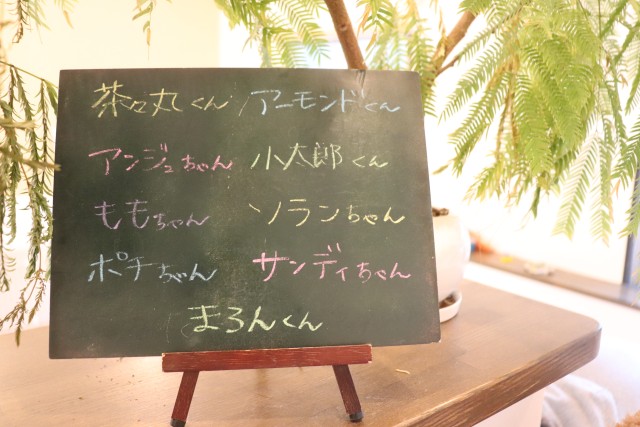 茶々丸くん アーモンドくん
アンジュちゃん 小太郎くん
ももちゃん ソランちゃん
ポチちゃん サンディちゃん
まろんくん